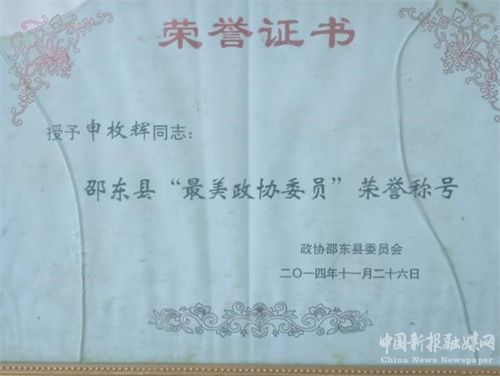 荣誉证书
授予申枚辉同志：
邵东县“最美政协委员”荣誉称号
政协邵东县委员会
二〇一四年十一月二十六日
中国新报融媒网
China News Newspaper